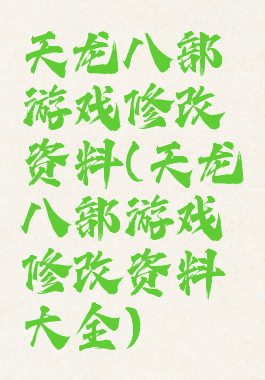 天龙八部
游戏修改
资料(天龙
八部游戏
修改资料
大全)